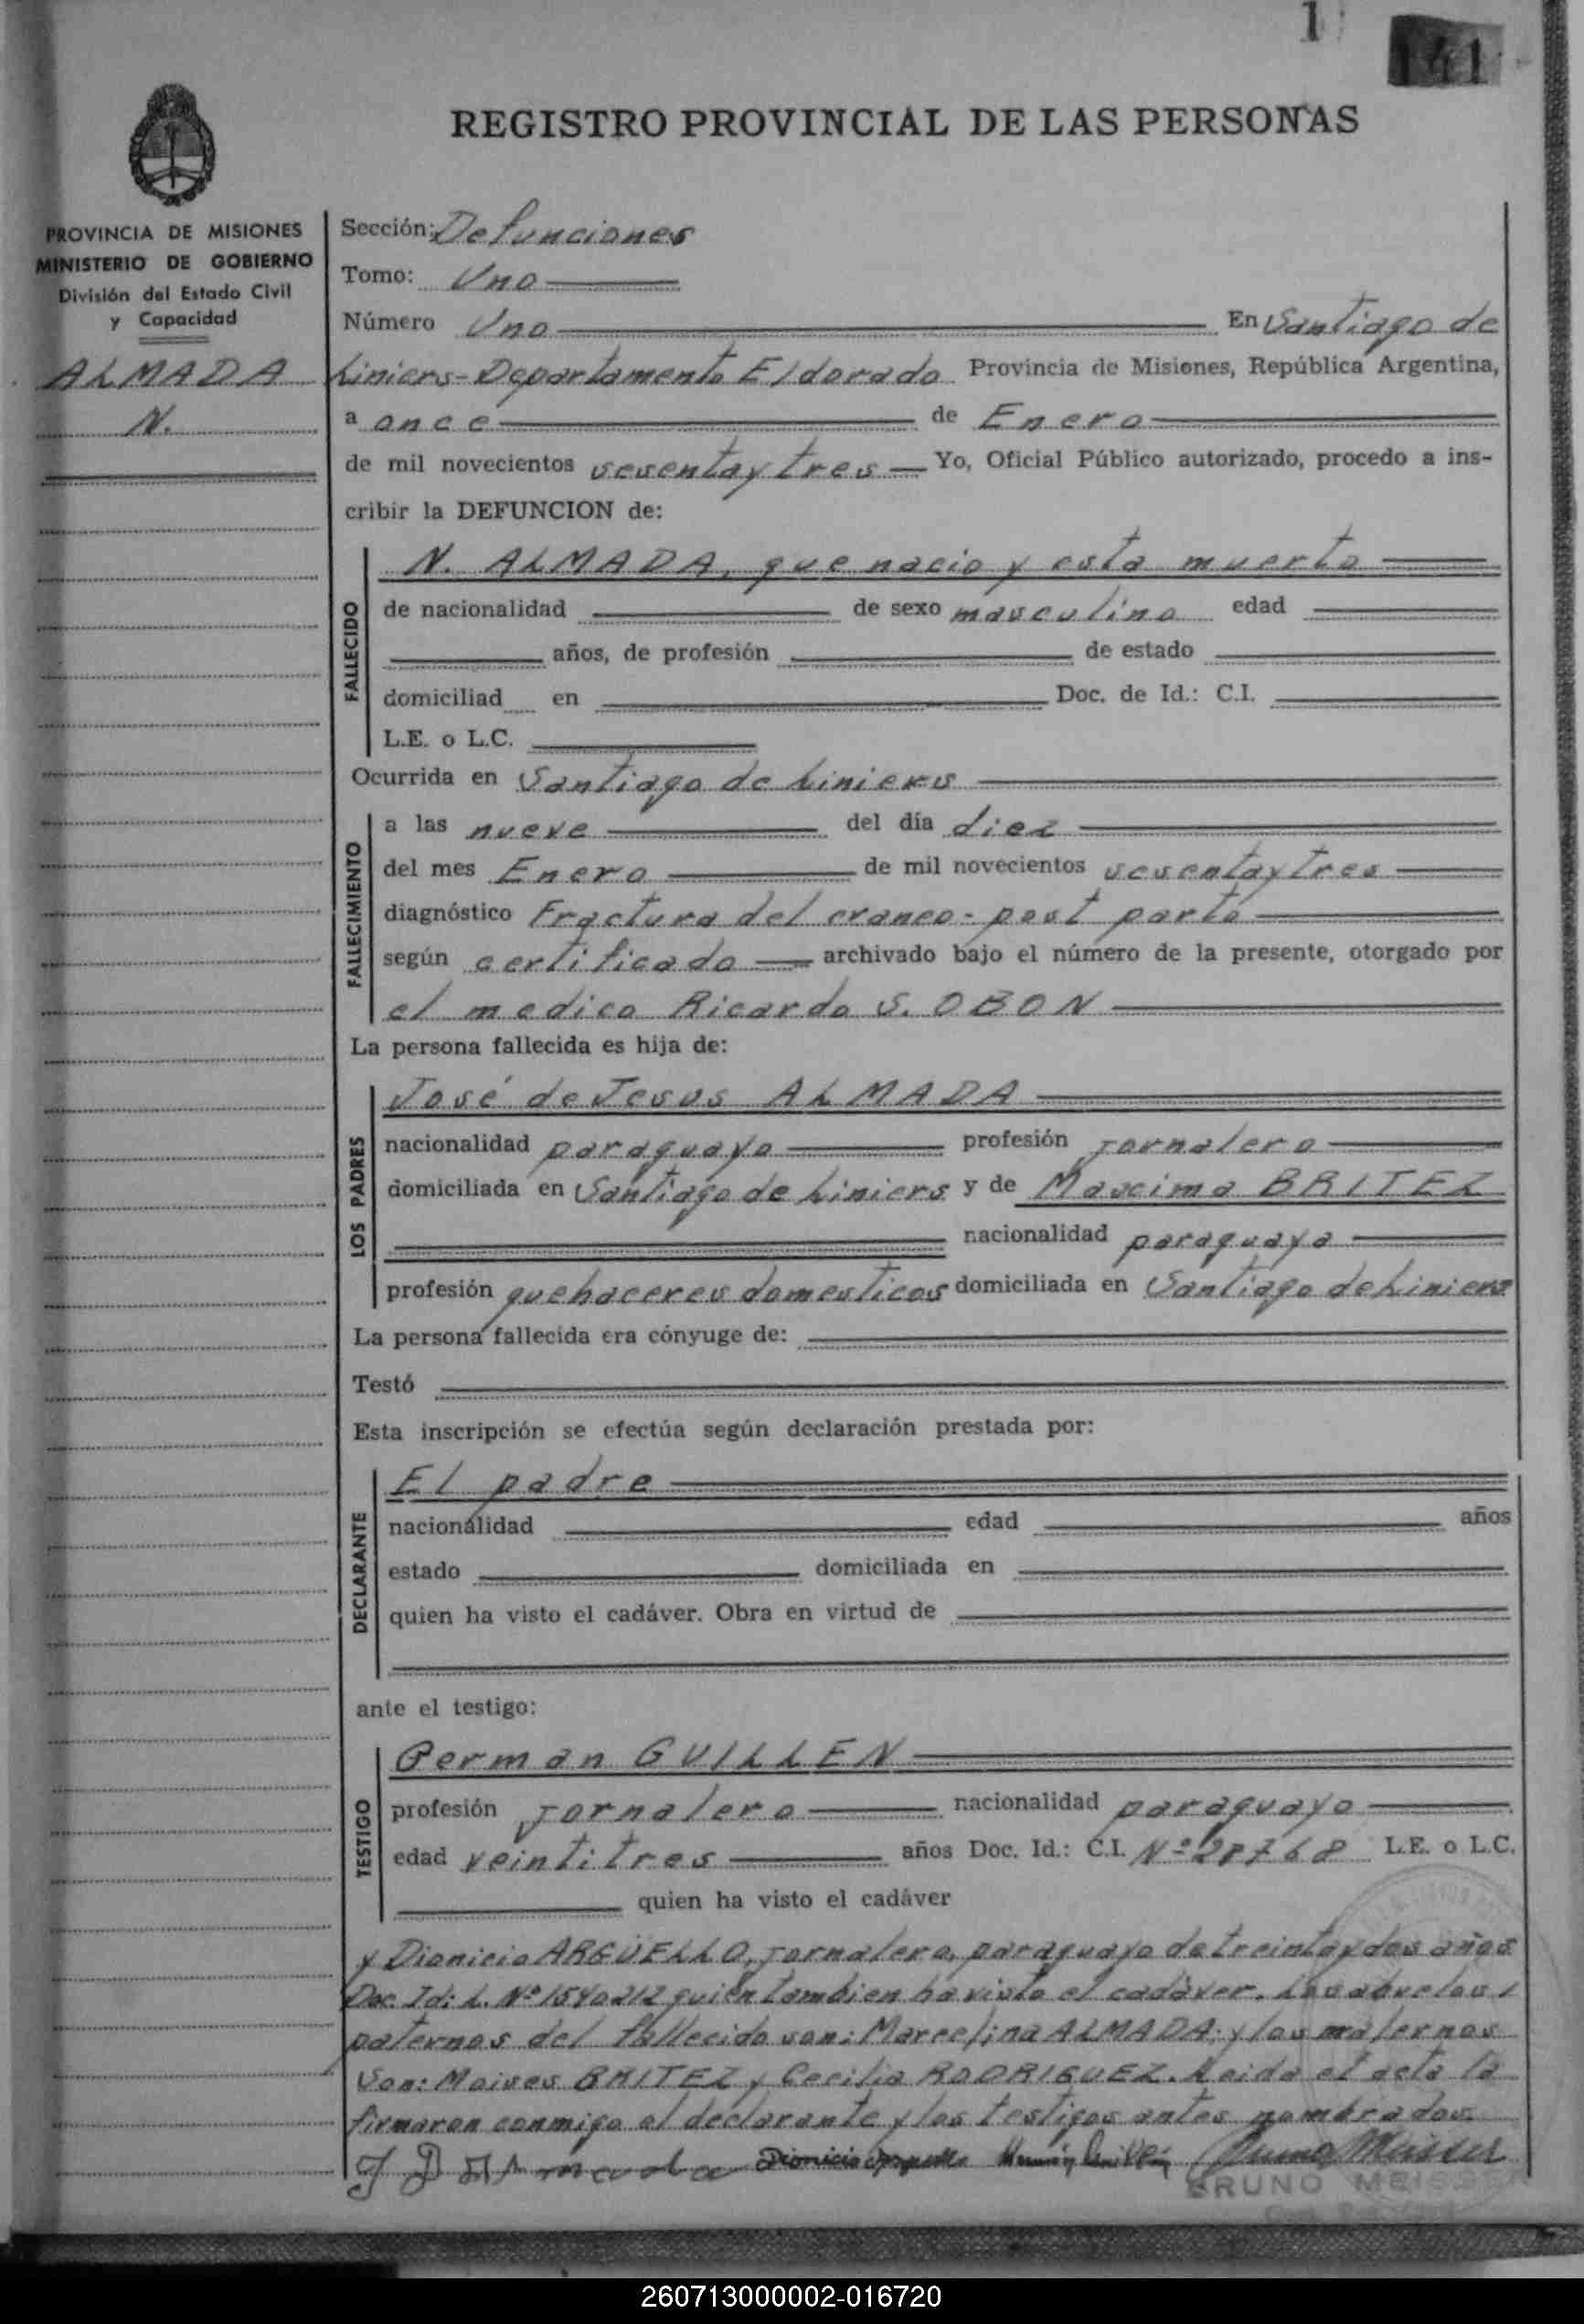 1
141
REGISTRO PROVINCIAL DE LAS PERSONAS
PROVINCIA DE MISIONES
MINISTERIO DE GOBIERNO
División del Estado Civil
y Capacidad
ALMADA
N.
Sección: Defunciones
Tomo: Uno
Número Uno En Santiago de
Liniers - Departamento Eldorado Provincia de Misiones, República Argentina,
a once de Enero
de mil novecientos sesentaytres Yo, Oficial Público autorizado, procedo a ins-
cribir la DEFUNCION de:
FALLECIDO
N. ALMADA, que nacio y esta muerto
de nacionalidad de sexo masculino edad
años, de profesión de estado
domiciliad en Doc. de Id.: C.I.
L.E. o L.C.
Ocurrida en Santiago de Liniers
FALLECIMIENTO
a las nueve del día diez
del mes Enero de mil novecientos sesentaytres
diagnóstico Fractura del craneo - post parto
según certificado archivado bajo el número de la presente, otorgado por
el medico Ricardo S. OBON
La persona fallecida es hija de:
LOS PADRES
José de Jesus ALMADA
nacionalidad paraguayo profesión jornalero
domiciliada en Santiago de Liniers y de Maxima BRITEZ
nacionalidad paraguaya
profesión quehaceres domesticos domiciliada en Santiago de Liniers
La persona fallecida era cónyuge de:
Testó
Esta inscripción se efectúa según declaración prestada por:
DECLARANTE
El padre
nacionalidad edad años
estado domiciliada en
quien ha visto el cadáver. Obra en virtud de
ante el testigo:
TESTIGO
German GUILLEN
profesión jornalero nacionalidad paraguayo
edad veintitres años Doc. Id.: C.I. Nº 28768 L.E. o L.C.
quien ha visto el cadáver
y Dionicio ARGÜELLO, jornalero, paraguayo de treintaydos años
Doc. Id: L. Nº 1540212 quien tambien ha visto el cadáver. Los abuelos
paternos del fallecido son: Marcelina ALMADA; y los maternos
son: Moises BRITEZ y Cecilia RODRIGUEZ. Leida el acta la
firmaron conmigo el declarante y los testigos antes nombrados.
J D J Almada Dionicio Arguello Germán Guillén Bruno Meisser
BRUNO MEISS
260713000002-016720